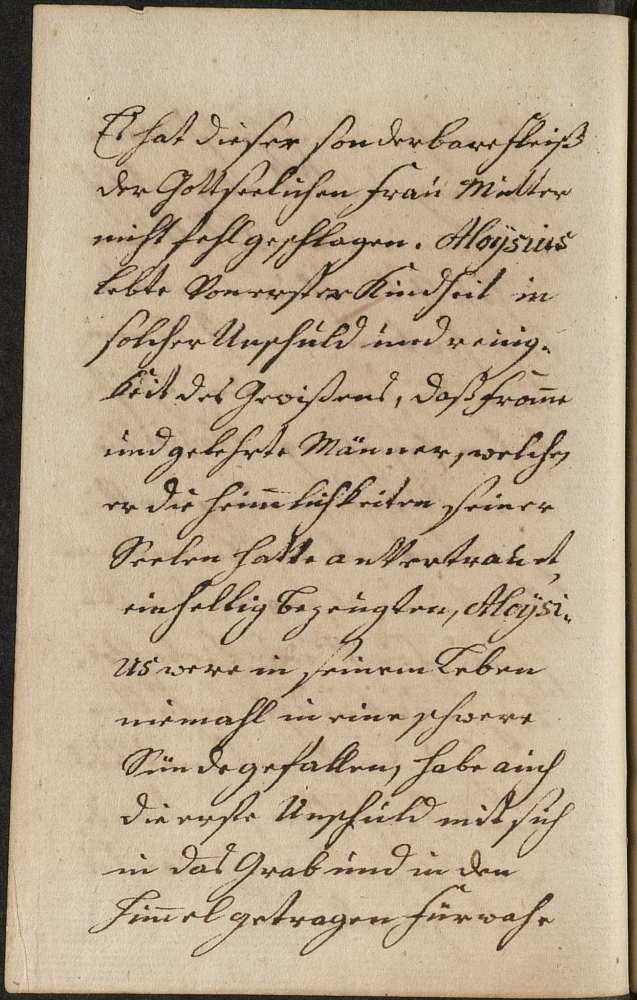 Es hat dieser sonderbare fleiß
der Gottseelichen Frau Mutter
nicht fehl geschlagen. Aloÿsius
lebte Von erster Kindheit in
solcher Unschuld und reinig-
Keit des Gewißens, daß from̅e
und gelehrte Männer, welchen
er die heimlichkeiten seiner
Seelen hatte anVertrauet
einhellig bezeugten, Aloÿsi-
us were in seinem Leben
niemahl in eine schwere
Sünde gefallen, habe auch
die erste Unschuld mit sich
in das Grab und in den
Him̅el getragen fürwahr